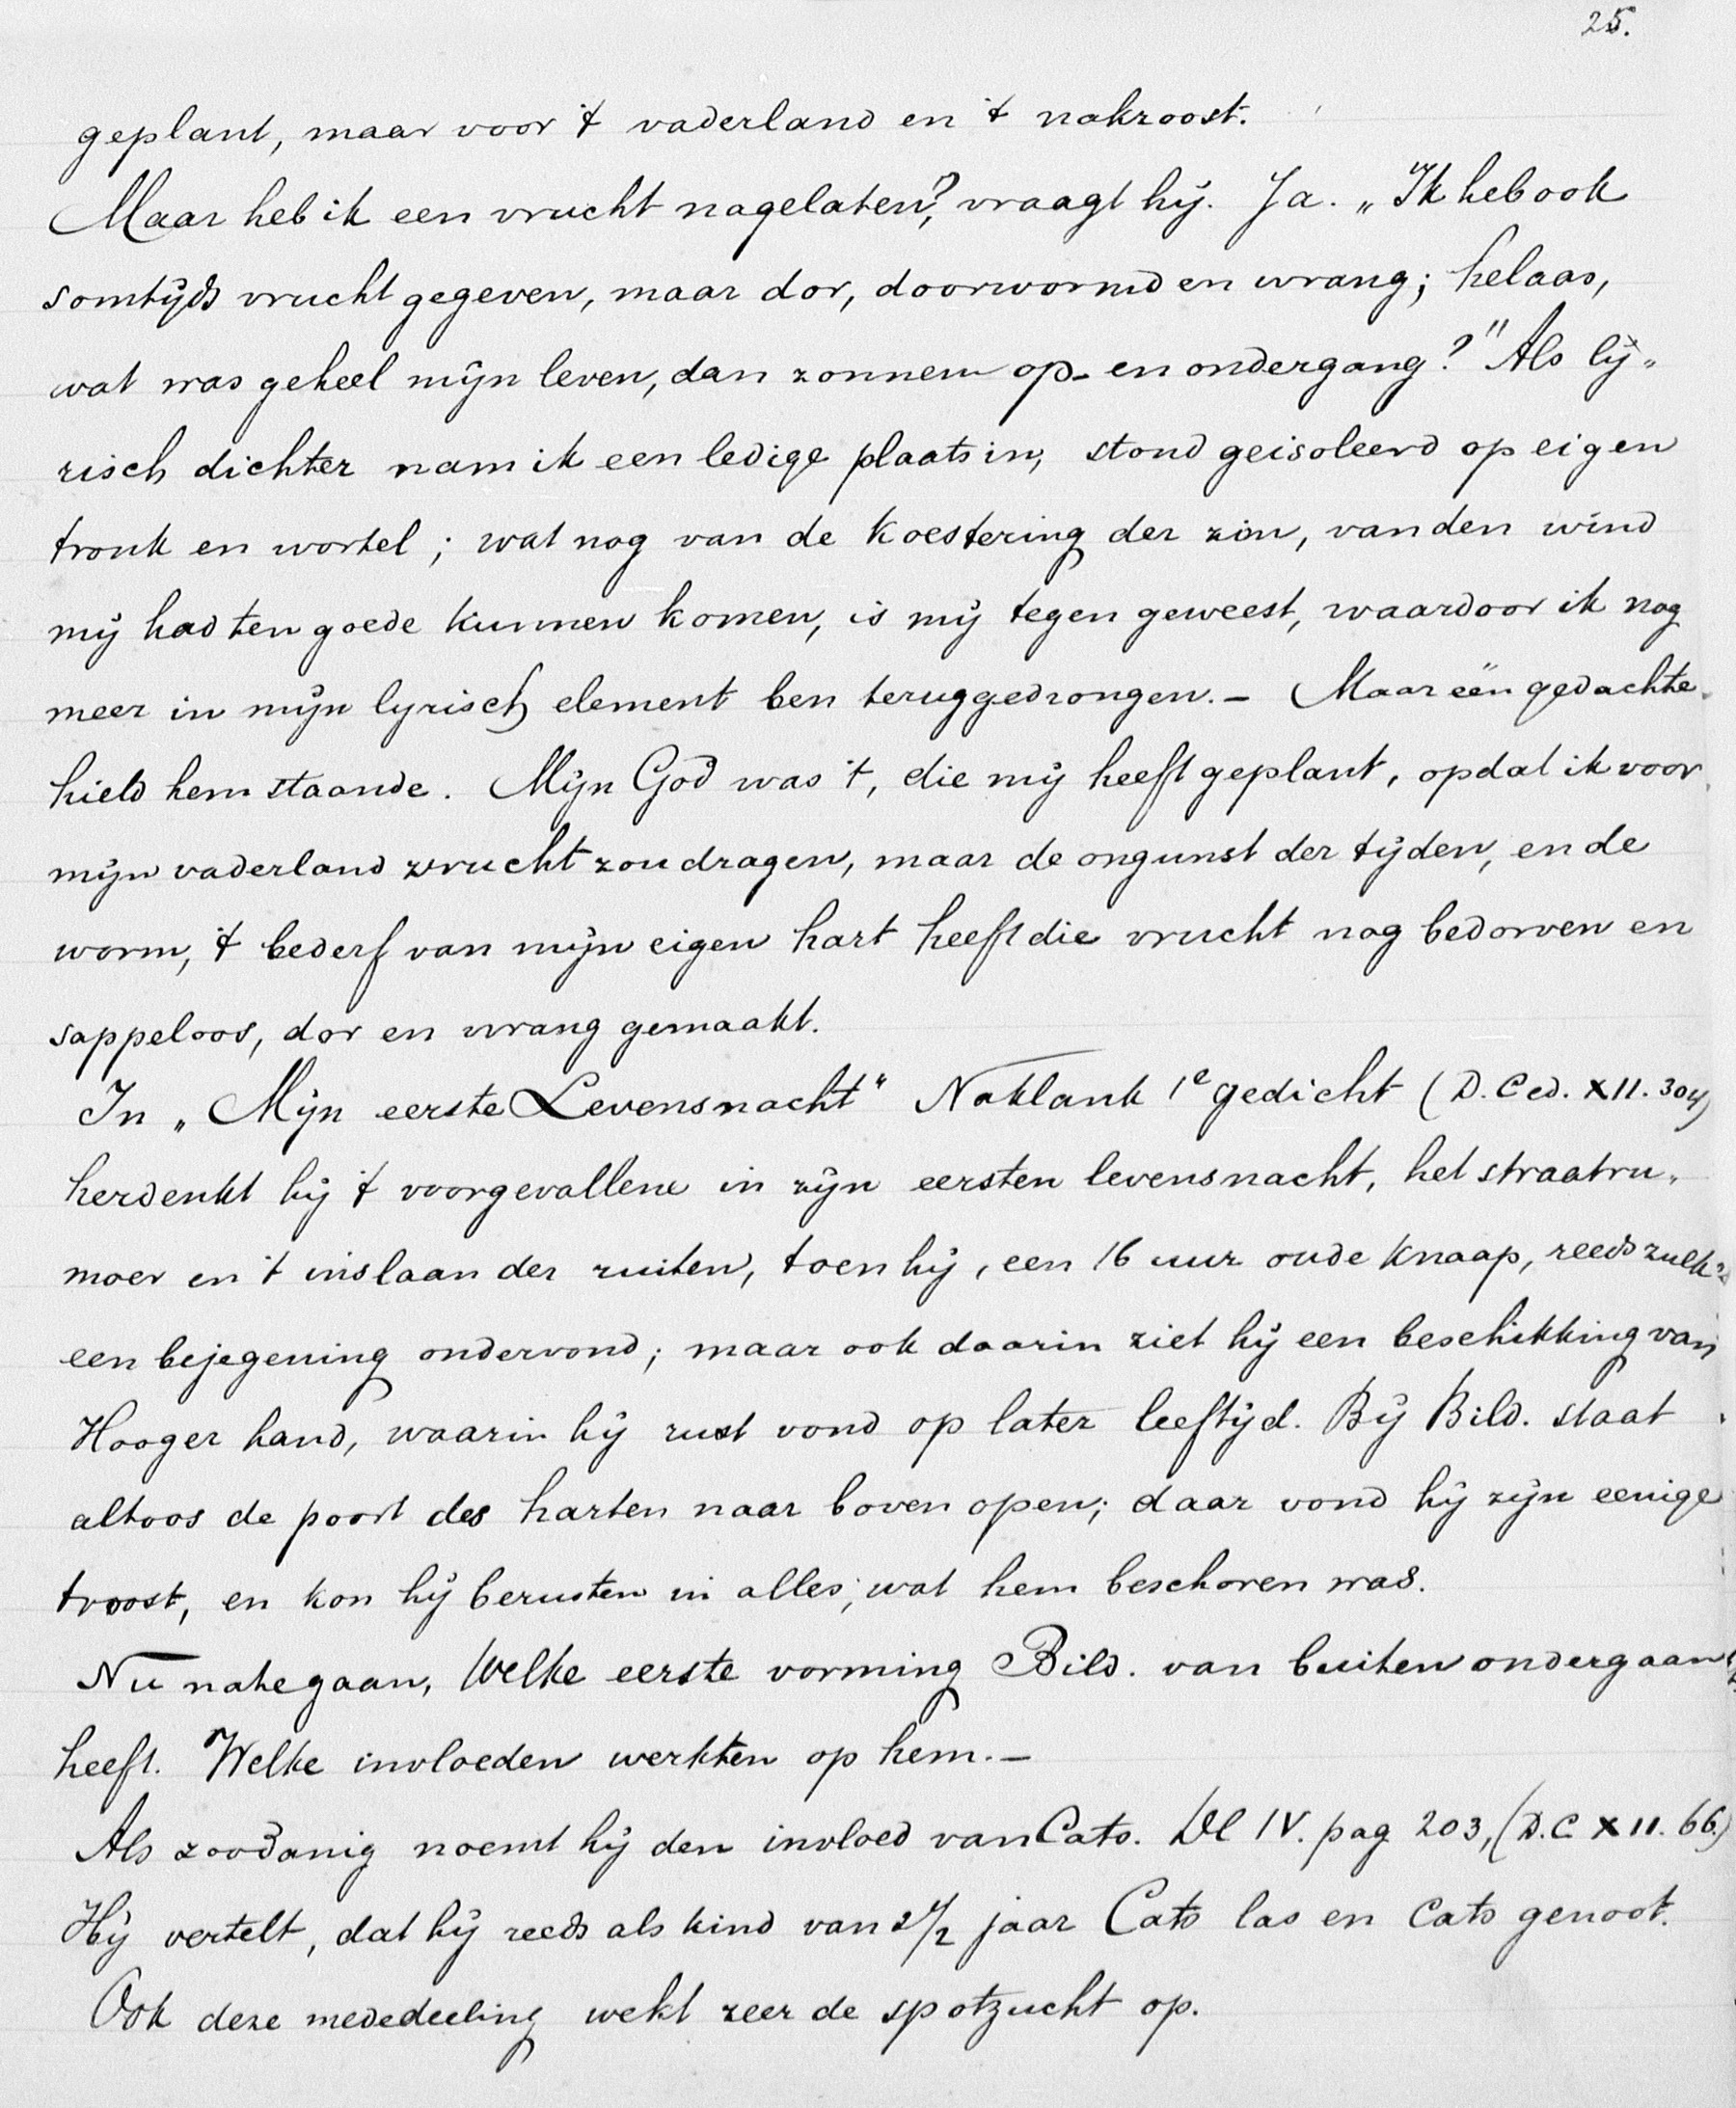 25.
geplant, maar voor 't vaderland en 't nakroost.
Maar heb ik een vrucht nagelaten?, vraagt hij. Ja. „Ik heb ook
somtijds vrucht gegeven, maar dor, doorwormd en wrang; helaas,
wat was geheel mijn leven, dan zonnen op- en ondergang?" Als ly-
risch dichter nam ik een ledige plaats in, stond geisoleerd op eigen
tronk en wortel; wat nog van de koestering der zon, van den wind
mij had ten goede kunnen komen, is mij tegen geweest, waardoor ik nog
meer in mijn lyrisch element ben teruggedrongen. – Maar één gedachte
hield hem staande. Mijn God was 't, die mij heeft geplant, opdat ik voor
mijn vaderland vrucht zou dragen, maar de ongunst der tijden, en de
worm, 't bederf van mijn eigen hart heeft die vrucht nog bedorven en
sappeloos, dor en wrang gemaakt.
In „Mijn eerste Levensnacht" Naklank 1e gedicht (D. C ed. XII. 304)
herdenkt hij 't voorgevallene in zijn eersten levensnacht, het straatru-
moer en 't inslaan der ruiten, toen hij, een 16 uur oude knaap, reeds zulk
een bejegening ondervond; maar ook daarin ziet hij een beschikking van
Hooger hand, waarin hij rust vond op later leeftijd. Bij Bild. staat
altoos de poort des harten naar boven open; daar vond hij zijn eenige
troost, en kon hij berusten in alles, wat hem beschoren was.
Nu nategaan, Welke eerste vorming Bild. van buiten ondergaan
heeft. Welke invloeden werkten op hem. –
Als zoodanig noemt hij den invloed van Cats. Dl IV. pag 203, (D. C XII. 66.)
Hij vertelt, dat hij reeds als kind van 2 1/2 jaar Cats las en Cats genoot.
Ook deze mededeeling wekt zeer de spotzucht op.